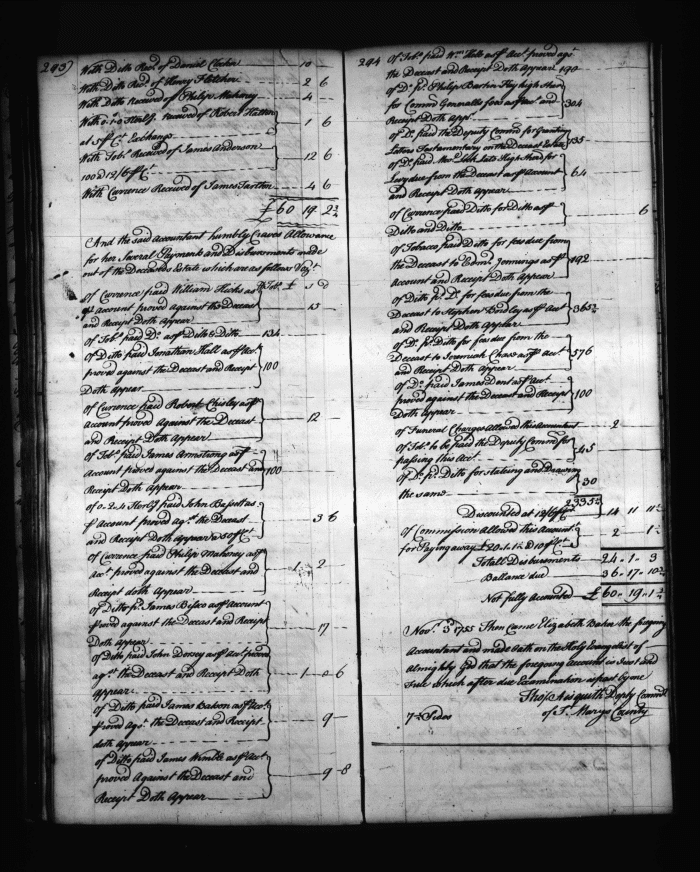 293)
With Ditto Recd. of Daniel Clocker 10
With Ditto Recd. of Henry Fletcher 2 6
With Ditto Received of Philip Mahoney 4
With 0.1.0 Sterlg. received of Robert 1 6
at 50 f Ct. Exchange
With Tobo. Received of James Anderson 12 6
100 @ 12/6 f Ct.
With Currence Received of James Tarlton 4 6
£ 60 19 2 3/4
And the said Accountant humbly Craves Allowance
for her Several Payments and Disbursements made
out of the Deceaseds Estate which are as follows Vizt.
Tobo. £ S D
Of Currence paid William Hicks as
pr Account proved Against the Deceast 15
and Receipt Doth Appear
Of Tobo. paid Do. as pr Ditto & Ditto 134
Of Ditto paid Jonathan Hall as pr Acct.
proved against the Deceast and Receipt 100
Doth Appear
Of Currence paid Robert Chisley as pr
Account proved Against the Deceast 12
and Receipt Doth Appear
Of Tobo. paid James Armstrong as pr
Account proves against the Deceast and 100
Receipt Doth Appear
Of 0.2.4 Sterlg. paid John Bassett as
pr Account proved agt. the Deceast 3 6
and Receipt Doth Appear @ 50 f Ct.
Of Currence paid Philip Mahoney as pr
Acct. proved against the Deceast and 1 2
Receipt doth Appear
Of Ditto pd. James Bisco as pr Account
proved against the Deceast and Receipt 17
Doth Appear
Of Ditto paid John Dorsey as pr Acct. proved
agt. the Deceast and Receipt Doth 1 0 6
Appear
Of Ditto paid James as pr Acct.
proved Agt. the Deceast and Receipt 9
doth Appear
Of Ditto paid James Wimble as pr Acct.
proved Against the Deceast and 9 8
Receipt Doth Appear
294
Of Tobo. paid Wm. Hall as pr Acct. proved agt.
the Deceast and Receipt Doth Appear 190
Of Do. pd. Philip Barton Key high Sherr.
for Commy. Generalls fees as pr Acct. and 304
Receipt Doth Appr.
Of Do. paid the Deputy Commy. for Granting
Letters Testamentory on the Deceast Estate 135
Of Do. paid Late High Sherr. for
Levy due from the Deceast as pr Account 64
and Receipt Doth Appear
Of Currence paid Ditto for Ditto as pr 6
Ditto and Ditto
Of Tobacco paid Ditto for fees due from
the Deceast to Edmd. Jennings as pr 192
Account and Receipt Doth Appear
Of Ditto pd. Do. for fees due from the
Deceast to Stephen Bordley as pr Acct. 365 1/2
and Receipt Doth Appear
Of Do. pd. Ditto for fees due from the
Deceast to Jeremiah Chase as pr Acct. 576
and Receipt Doth Appear
Of Do. paid James Dent as pr Acct.
proved against the Deceast and Receipt 100
Doth appear
Of Funeral Charges Allowed this Accountant 2
Of Tobo. to be paid the Deputy Commy. for
passing this Acct. 45
Of Do. pd. Ditto for Stating and Drawing
the same 30
2335 1/2
Discounted at 12/6 f Ct. 14 11 11 1/2
Of Commission Allowed this Accountt.
for Paying away £20.1.1 1/2 @ 10 f Ct. 2 1 1/2
Totall Disbursments 24 . 1 . 3
Ballance due 36 . 17 . 10 3/4
Not fully Accounted £ 60 . 19 . 1 3/4
Novr. 3d. 1755 Then Came Elizabeth Baker the foregoing
Accountant and made Oath on the Holy Evangelist of
Almighty God that the foregoing Account is Just and
True which after due Examination is past by me
Thos. Aisquith Depty Commy.
7 1/2 Sides
of St. Marys County